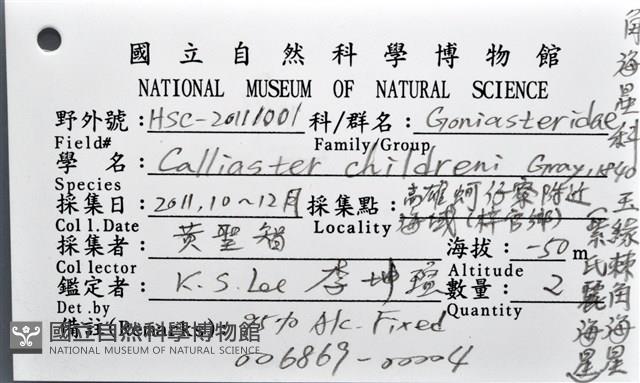 國立自然科學博物館
NATIONAL MUSEUM OF NATURAL SCIENCE
野外號：HSC-20111001 科/群名：Goniasteridae
Field# Family/Group
學名：Calliaster childreni Gray, 1840
Species
採集日：2011,10~12月 採集點：高雄蚵仔寮附近
海域(梓官鄉)
Col l.Date Locality
採集者：黃聖智 海拔：-50 m
Collector Altitude
鑑定者：K.S.Lee 李坤瑄 數量：2
Det.by Quantity
備註(Remarks)：95% Alc. Fixed
006869-00004
國立自然科學博物館
NATIONAL MUSEUM OF NATURAL SCIENCE
角海星科
玉緣棘角海星
(柴氏麗海星)